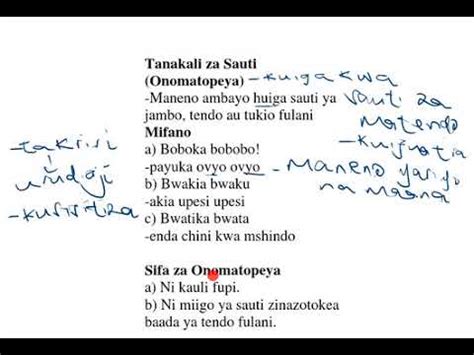 Tanakali za Sauti
(Onomatopeya) - kuiga kwa
-Maneno ambayo huiga sauti ya sauti za
jambo, tendo au tukio fulani matendo
Mifano - kuifuatia
a) Boboka bobobo!
-payuka ovyo ovyo - Maneno yasiyo
b) Bwakia bwaku na maana
-akia upesi upesi
c) Bwatika bwata
-enda chini kwa mshindo
-takriri
urudiaji
-kusisitiza
Sifa za Onomatopeya
a) Ni kauli fupi.
b) Ni miigo ya sauti zinazotokea
baada ya tendo fulani.